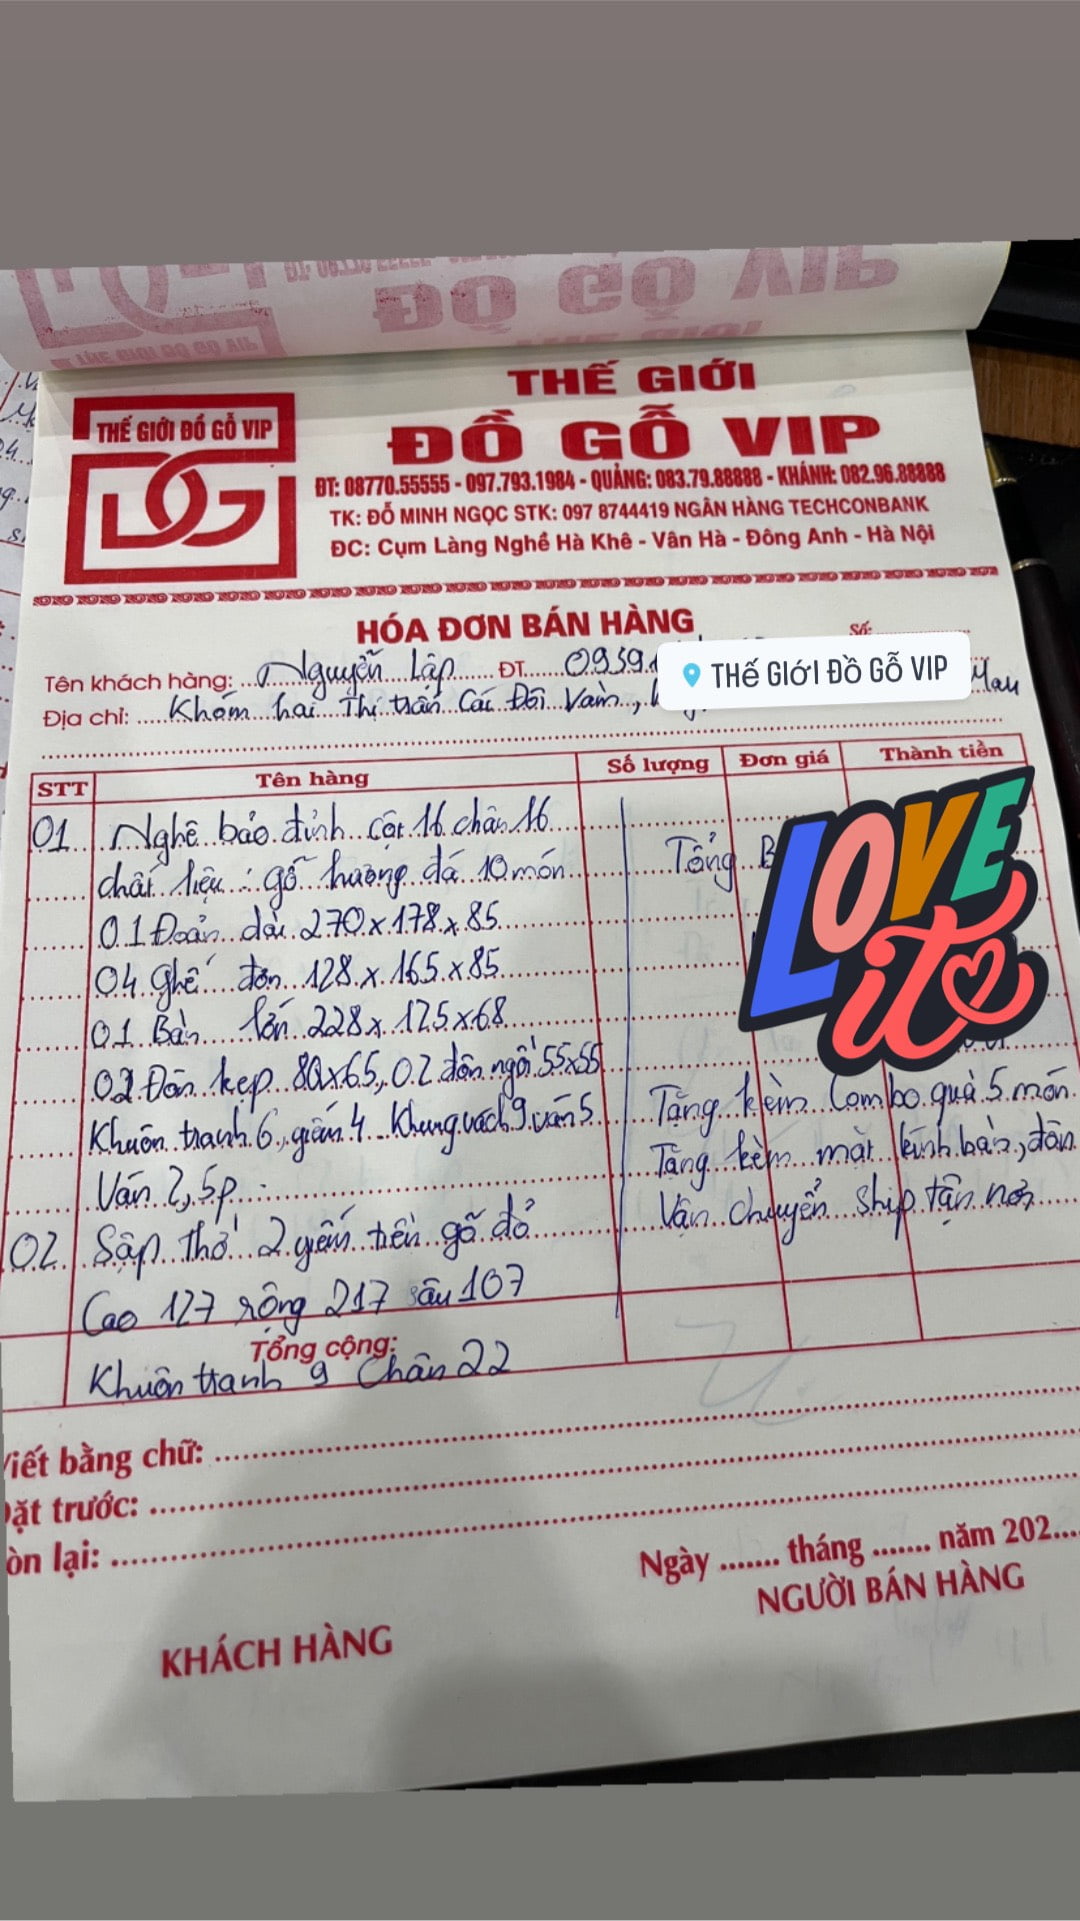 ĐỒ GỖ VIP
THẾ GIỚI ĐỒ GỖ VIP
THẾ GIỚI
ĐỒ GỖ VIP
THẾ GIỚI ĐỒ GỖ VIP
DG
ĐT: 08770.55555 - 097.793.1984 - QUẢNG: 083.79.88888 - KHÁNH: 082.96.88888
TK: ĐỖ MINH NGỌC STK: 097 8744419 NGÂN HÀNG TECHCONBANK
ĐC: Cụm Làng Nghề Hà Khê - Vân Hà - Đông Anh - Hà Nội
HÓA ĐƠN BÁN HÀNG
Số:
Tên khách hàng: Nguyễn Lập ĐT 0939
THế GIớI Đồ Gỗ VIP
Địa chỉ: Khóm hai Thị trấn Cái Đôi Vàm, Mau
STT Tên hàng Số lượng Đơn giá Thành tiền
01 Nghê bảo đỉnh cột 16 chân 16
chất liệu : gỗ hương đá 10 món Tổng
LOVE it
01 Đoản dài 270 x 178 x 85
04 Ghế đơn 128 x 165 x 85
01 Bàn lớn 228 x 125 x 68
02 Đôn kẹp 80x65, 02 đôn ngồi 55x55
Khuôn tranh 6, giấn 4 Khung vách 9 ván 5 Tặng kèm Combo quà 5 món
Ván 2,5p Tặng kèm mặt kính bàn, đôn
02 Sập thờ 2 giấn tiền gỗ đỏ Vận chuyển ship tận nơi
Cao 127 rộng 217 sâu 107
Tổng cộng:
Khuôn tranh 9 Chân 22
Viết bằng chữ:
Đặt trước:
òn lại:
Ngày ....... tháng ....... năm 202....
NGƯỜI BÁN HÀNG
KHÁCH HÀNG